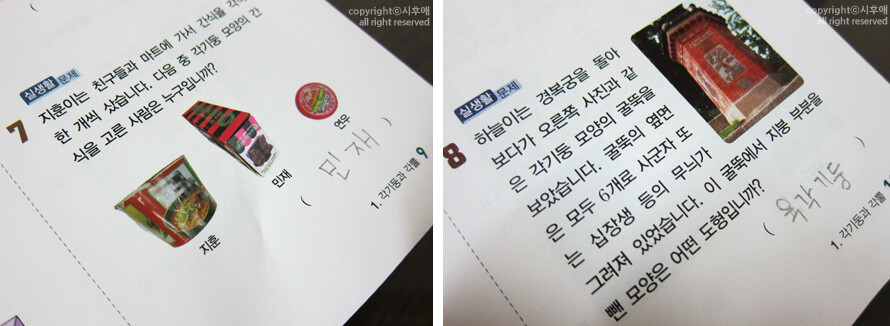 copyright©시후애
all right reserved
실생활 문제
7 지훈이는 친구들과 마트에 가서 간식을 각각
한 개씩 샀습니다. 다음 중 각기둥 모양의 간
식을 고른 사람은 누구입니까?
지훈
민재
연우
( 민재 )
1. 각기둥과 각뿔 9
copyright©시후애
all right reserved
실생활 문제
8 하늘이는 경복궁을 돌아
보다가 오른쪽 사진과 같
은 각기둥 모양의 굴뚝을
보았습니다. 굴뚝의 옆면
은 모두 6개로 사군자 또
는 십장생 등의 무늬가
그려져 있었습니다. 이 굴뚝에서 지붕 부분을
뺀 모양은 어떤 도형입니까?
( 육각기둥
1. 각기둥과